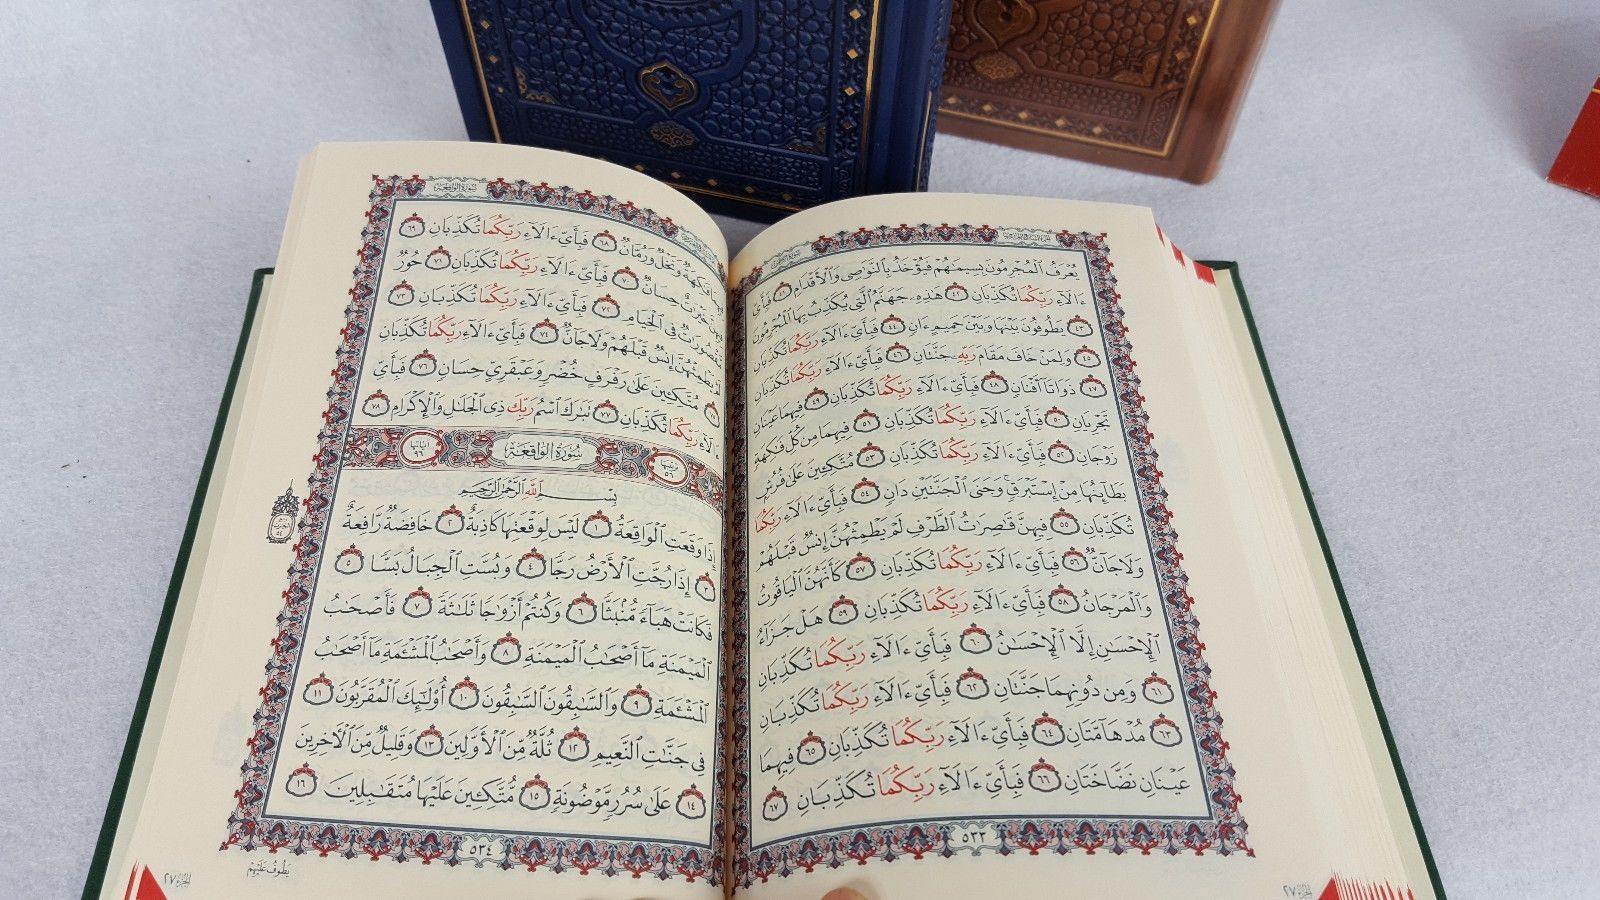 يُعْرَفُ ٱلْمُجْرِمُونَ بِسِيمَٰهُمْ فَيُؤْخَذُ بِٱلنَّوَٰصِى وَٱلْأَقْدَامِ ٤١ فَبِأَىِّ
ءَالَآءِ رَبِّكُمَا تُكَذِّبَانِ ٤٢ هَٰذِهِۦ جَهَنَّمُ ٱلَّتِى يُكَذِّبُ بِهَا ٱلْمُجْرِمُونَ
٤٣ يَطُوفُونَ بَيْنَهَا وَبَيْنَ حَمِيمٍ ءَانٍ ٤٤ فَبِأَىِّ ءَالَآءِ رَبِّكُمَا تُكَذِّبَانِ
٤٥ وَلِمَنْ خَافَ مَقَامَ رَبِّهِۦ جَنَّتَانِ ٤٦ فَبِأَىِّ ءَالَآءِ رَبِّكُمَا تُكَذِّبَانِ
٤٧ ذَوَاتَآ أَفْنَانٍ ٤٨ فَبِأَىِّ ءَالَآءِ رَبِّكُمَا تُكَذِّبَانِ ٤٩ فِيهِمَا عَيْنَانِ
تَجْرِيَانِ ٥٠ فَبِأَىِّ ءَالَآءِ رَبِّكُمَا تُكَذِّبَانِ ٥١ فِيهِمَا مِن كُلِّ فَٰكِهَةٍ
زَوْجَانِ ٥٢ فَبِأَىِّ ءَالَآءِ رَبِّكُمَا تُكَذِّبَانِ ٥٣ مُتَّكِـِٔينَ عَلَىٰ فُرُشٍۭ
بَطَآئِنُهَا مِنْ إِسْتَبْرَقٍ وَجَنَى ٱلْجَنَّتَيْنِ دَانٍ ٥٤ فَبِأَىِّ ءَالَآءِ رَبِّكُمَا
تُكَذِّبَانِ ٥٥ فِيهِنَّ قَٰصِرَٰتُ ٱلطَّرْفِ لَمْ يَطْمِثْهُنَّ إِنسٌ قَبْلَهُمْ
وَلَا جَآنٌّ ٥٦ فَبِأَىِّ ءَالَآءِ رَبِّكُمَا تُكَذِّبَانِ ٥٧ كَأَنَّهُنَّ ٱلْيَاقُوتُ
وَٱلْمَرْجَانُ ٥٨ فَبِأَىِّ ءَالَآءِ رَبِّكُمَا تُكَذِّبَانِ ٥٩ هَلْ جَزَآءُ
ٱلْإِحْسَٰنِ إِلَّا ٱلْإِحْسَٰنُ ٦٠ فَبِأَىِّ ءَالَآءِ رَبِّكُمَا تُكَذِّبَانِ
٦١ وَمِن دُونِهِمَا جَنَّتَانِ ٦٢ فَبِأَىِّ ءَالَآءِ رَبِّكُمَا تُكَذِّبَانِ
٦٣ مُدْهَآمَّتَانِ ٦٤ فَبِأَىِّ ءَالَآءِ رَبِّكُمَا تُكَذِّبَانِ ٦٥ فِيهِمَا
عَيْنَانِ نَضَّاخَتَانِ ٦٦ فَبِأَىِّ ءَالَآءِ رَبِّكُمَا تُكَذِّبَانِ ٦٧
٥٣٣
الجزء ٢٧
سُورَةُ الوَاقِعَة
فَٰكِهَةٌ وَنَخْلٌ وَرُمَّانٌ ٦٨ فَبِأَىِّ ءَالَآءِ رَبِّكُمَا تُكَذِّبَانِ ٦٩
خَيْرَٰتٌ حِسَانٌ ٧٠ فَبِأَىِّ ءَالَآءِ رَبِّكُمَا تُكَذِّبَانِ ٧١ حُورٌ
مَّقْصُورَٰتٌ فِى ٱلْخِيَامِ ٧٢ فَبِأَىِّ ءَالَآءِ رَبِّكُمَا تُكَذِّبَانِ ٧٣
لَمْ يَطْمِثْهُنَّ إِنسٌ قَبْلَهُمْ وَلَا جَآنٌّ ٧٤ فَبِأَىِّ ءَالَآءِ رَبِّكُمَا تُكَذِّبَانِ
٧٥ مُتَّكِـِٔينَ عَلَىٰ رَفْرَفٍ خُضْرٍ وَعَبْقَرِىٍّ حِسَانٍ ٧٦ فَبِأَىِّ
ءَالَآءِ رَبِّكُمَا تُكَذِّبَانِ ٧٧ تَبَٰرَكَ ٱسْمُ رَبِّكَ ذِى ٱلْجَلَٰلِ وَٱلْإِكْرَامِ ٧٨
ترتيبها ٥٦ سُورَةُ الوَاقِعَة آياتها ٩٦
بِسْمِ ٱللَّهِ ٱلرَّحْمَٰنِ ٱلرَّحِيمِ
إِذَا وَقَعَتِ ٱلْوَاقِعَةُ ١ لَيْسَ لِوَقْعَتِهَا كَاذِبَةٌ ٢ خَافِضَةٌ رَّافِعَةٌ
٣ إِذَا رُجَّتِ ٱلْأَرْضُ رَجًّا ٤ وَبُسَّتِ ٱلْجِبَالُ بَسًّا ٥
فَكَانَتْ هَبَآءً مُّنۢبَثًّا ٦ وَكُنتُمْ أَزْوَٰجًا ثَلَٰثَةً ٧ فَأَصْحَٰبُ
ٱلْمَيْمَنَةِ مَآ أَصْحَٰبُ ٱلْمَيْمَنَةِ ٨ وَأَصْحَٰبُ ٱلْمَشْـَٔمَةِ مَآ أَصْحَٰبُ
ٱلْمَشْـَٔمَةِ ٩ وَٱلسَّٰبِقُونَ ٱلسَّٰبِقُونَ ١٠ أُو۟لَٰٓئِكَ ٱلْمُقَرَّبُونَ ١١
فِى جَنَّٰتِ ٱلنَّعِيمِ ١٢ ثُلَّةٌ مِّنَ ٱلْأَوَّلِينَ ١٣ وَقَلِيلٌ مِّنَ ٱلْـَٔاخِرِينَ
١٤ عَلَىٰ سُرُرٍ مَّوْضُونَةٍ ١٥ مُّتَّكِـِٔينَ عَلَيْهَا مُتَقَٰبِلِينَ ١٦
٥٣٤
يَطُوفُ عَلَيْهِمْ
الجزء ٢٧